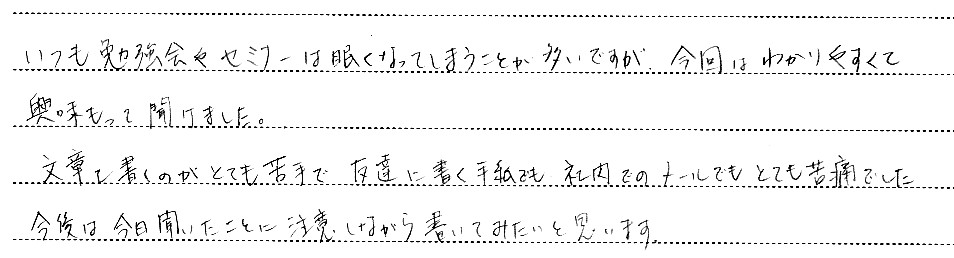 いつも勉強会やセミナーは眠くなってしまうことが多いですが、今回はわかりやすくて
興味もって聞けました。
文章を書くのがとても苦手で 友達に書く手紙でも 社内でのメールでもとても苦痛でした
今後は今日聞いたことに注意しながら書いてみたいと思います。